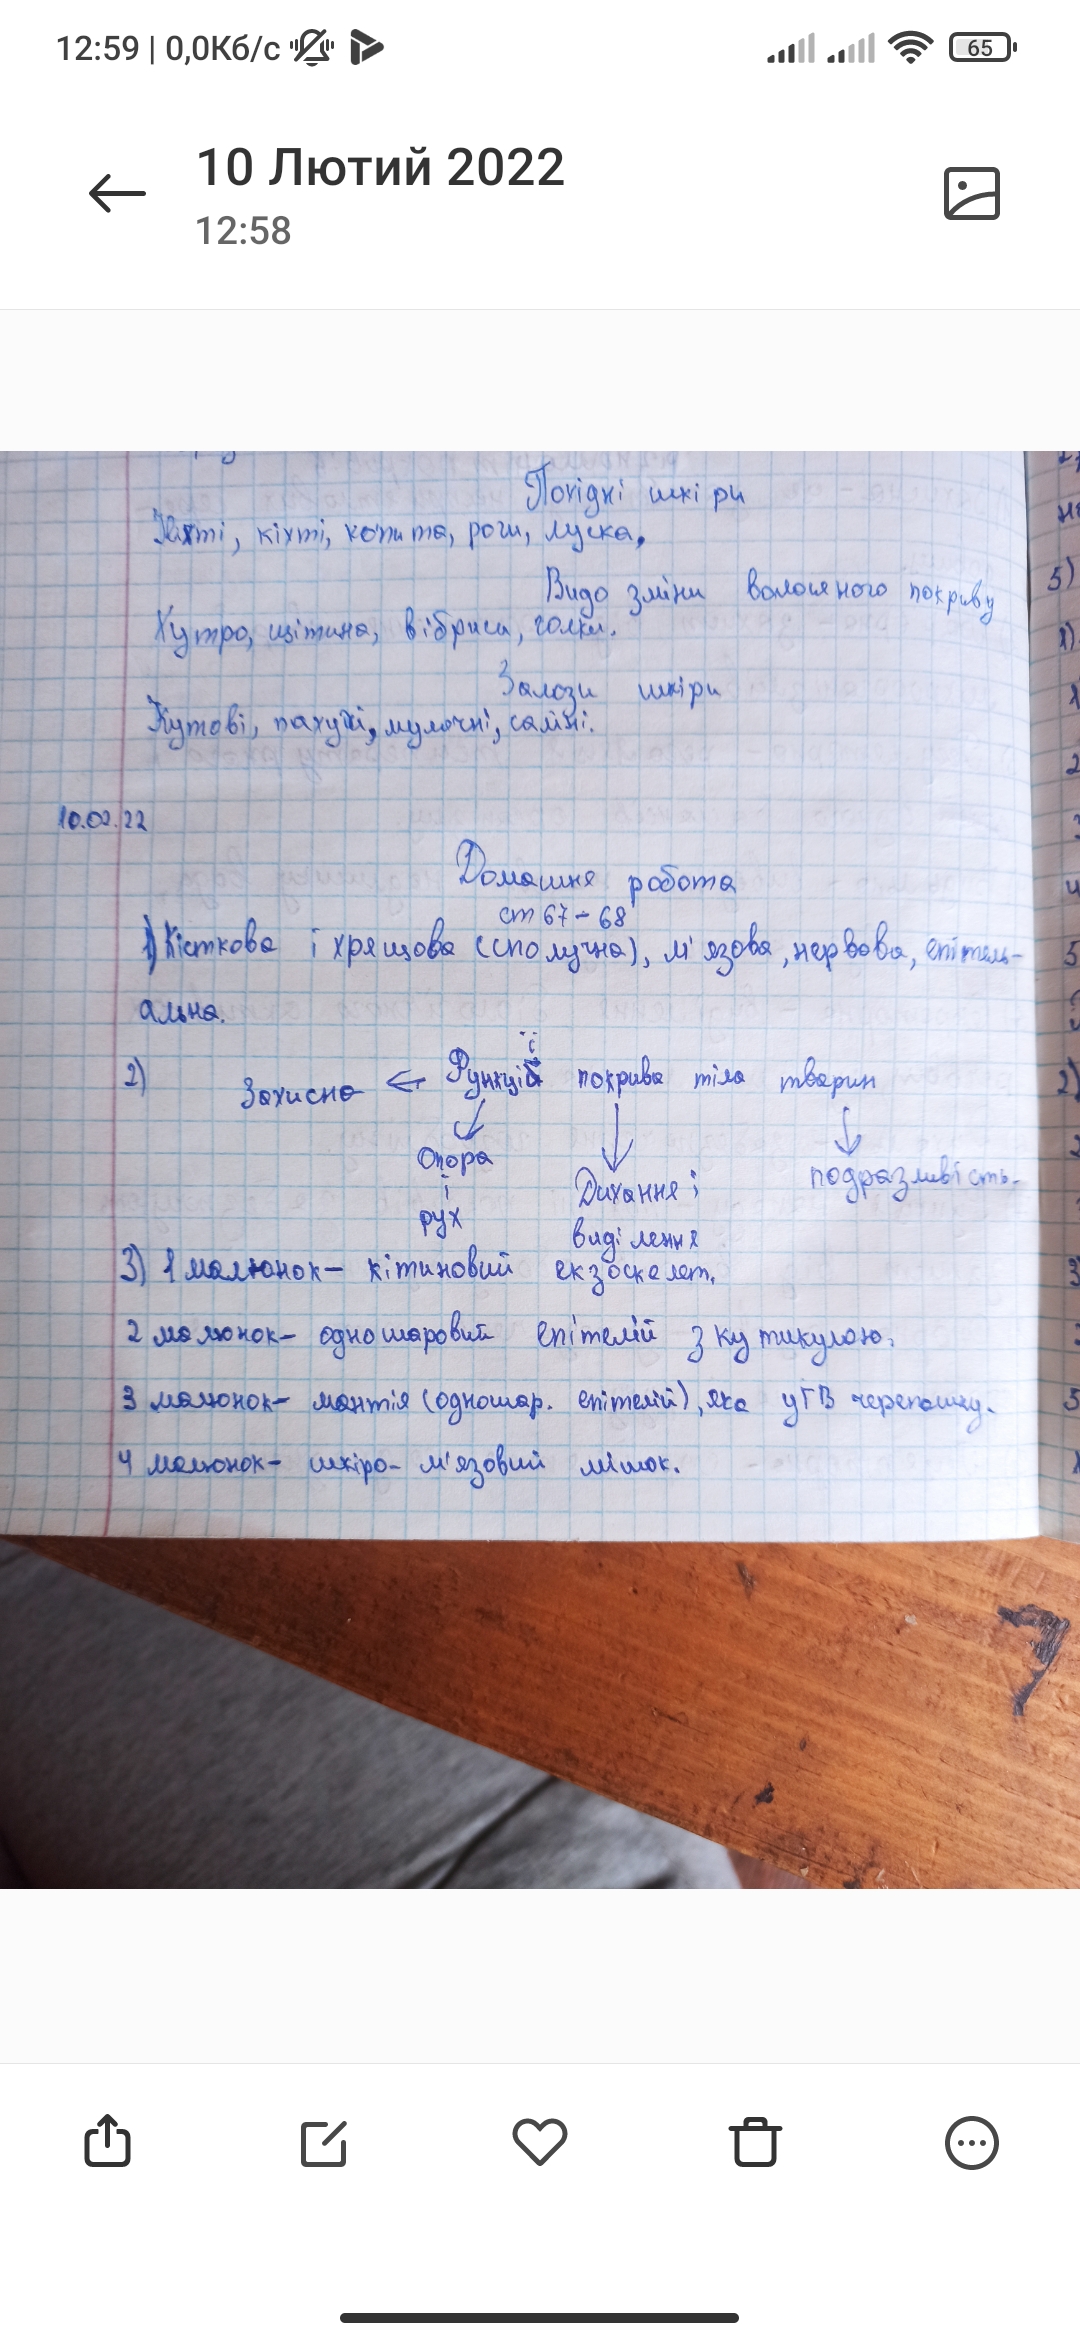 12:59 | 0,0Кб/с
65
10 Лютий 2022
12:58
Похідні шкіри
Нігті, кіхті, копита, роги, луска.
Видо зміни волосяного покриву
5)
Хутро, щітина, вібриси, голки.
Залози шкіри
пахучі, мулочні, сальні.
10.02.22
Домашня робота
ст 67-68
1) Кісткова і хрящова (сполучна), м'язова, нервова, епітель-
альна.
2) Захисна ← Функції покрива тіла тварин
Опора
і
рух
Дихання і
виділення
подразливість.
3) 1 малюнок - хітиновий екзоскелет.
2 малюнок - одношаровий епітелій з кутикулою.
3 малюнок - мантія (одношар. епітелій), яка утв черепашку.
4 малюнок - шкіро-м'язовий мішок.